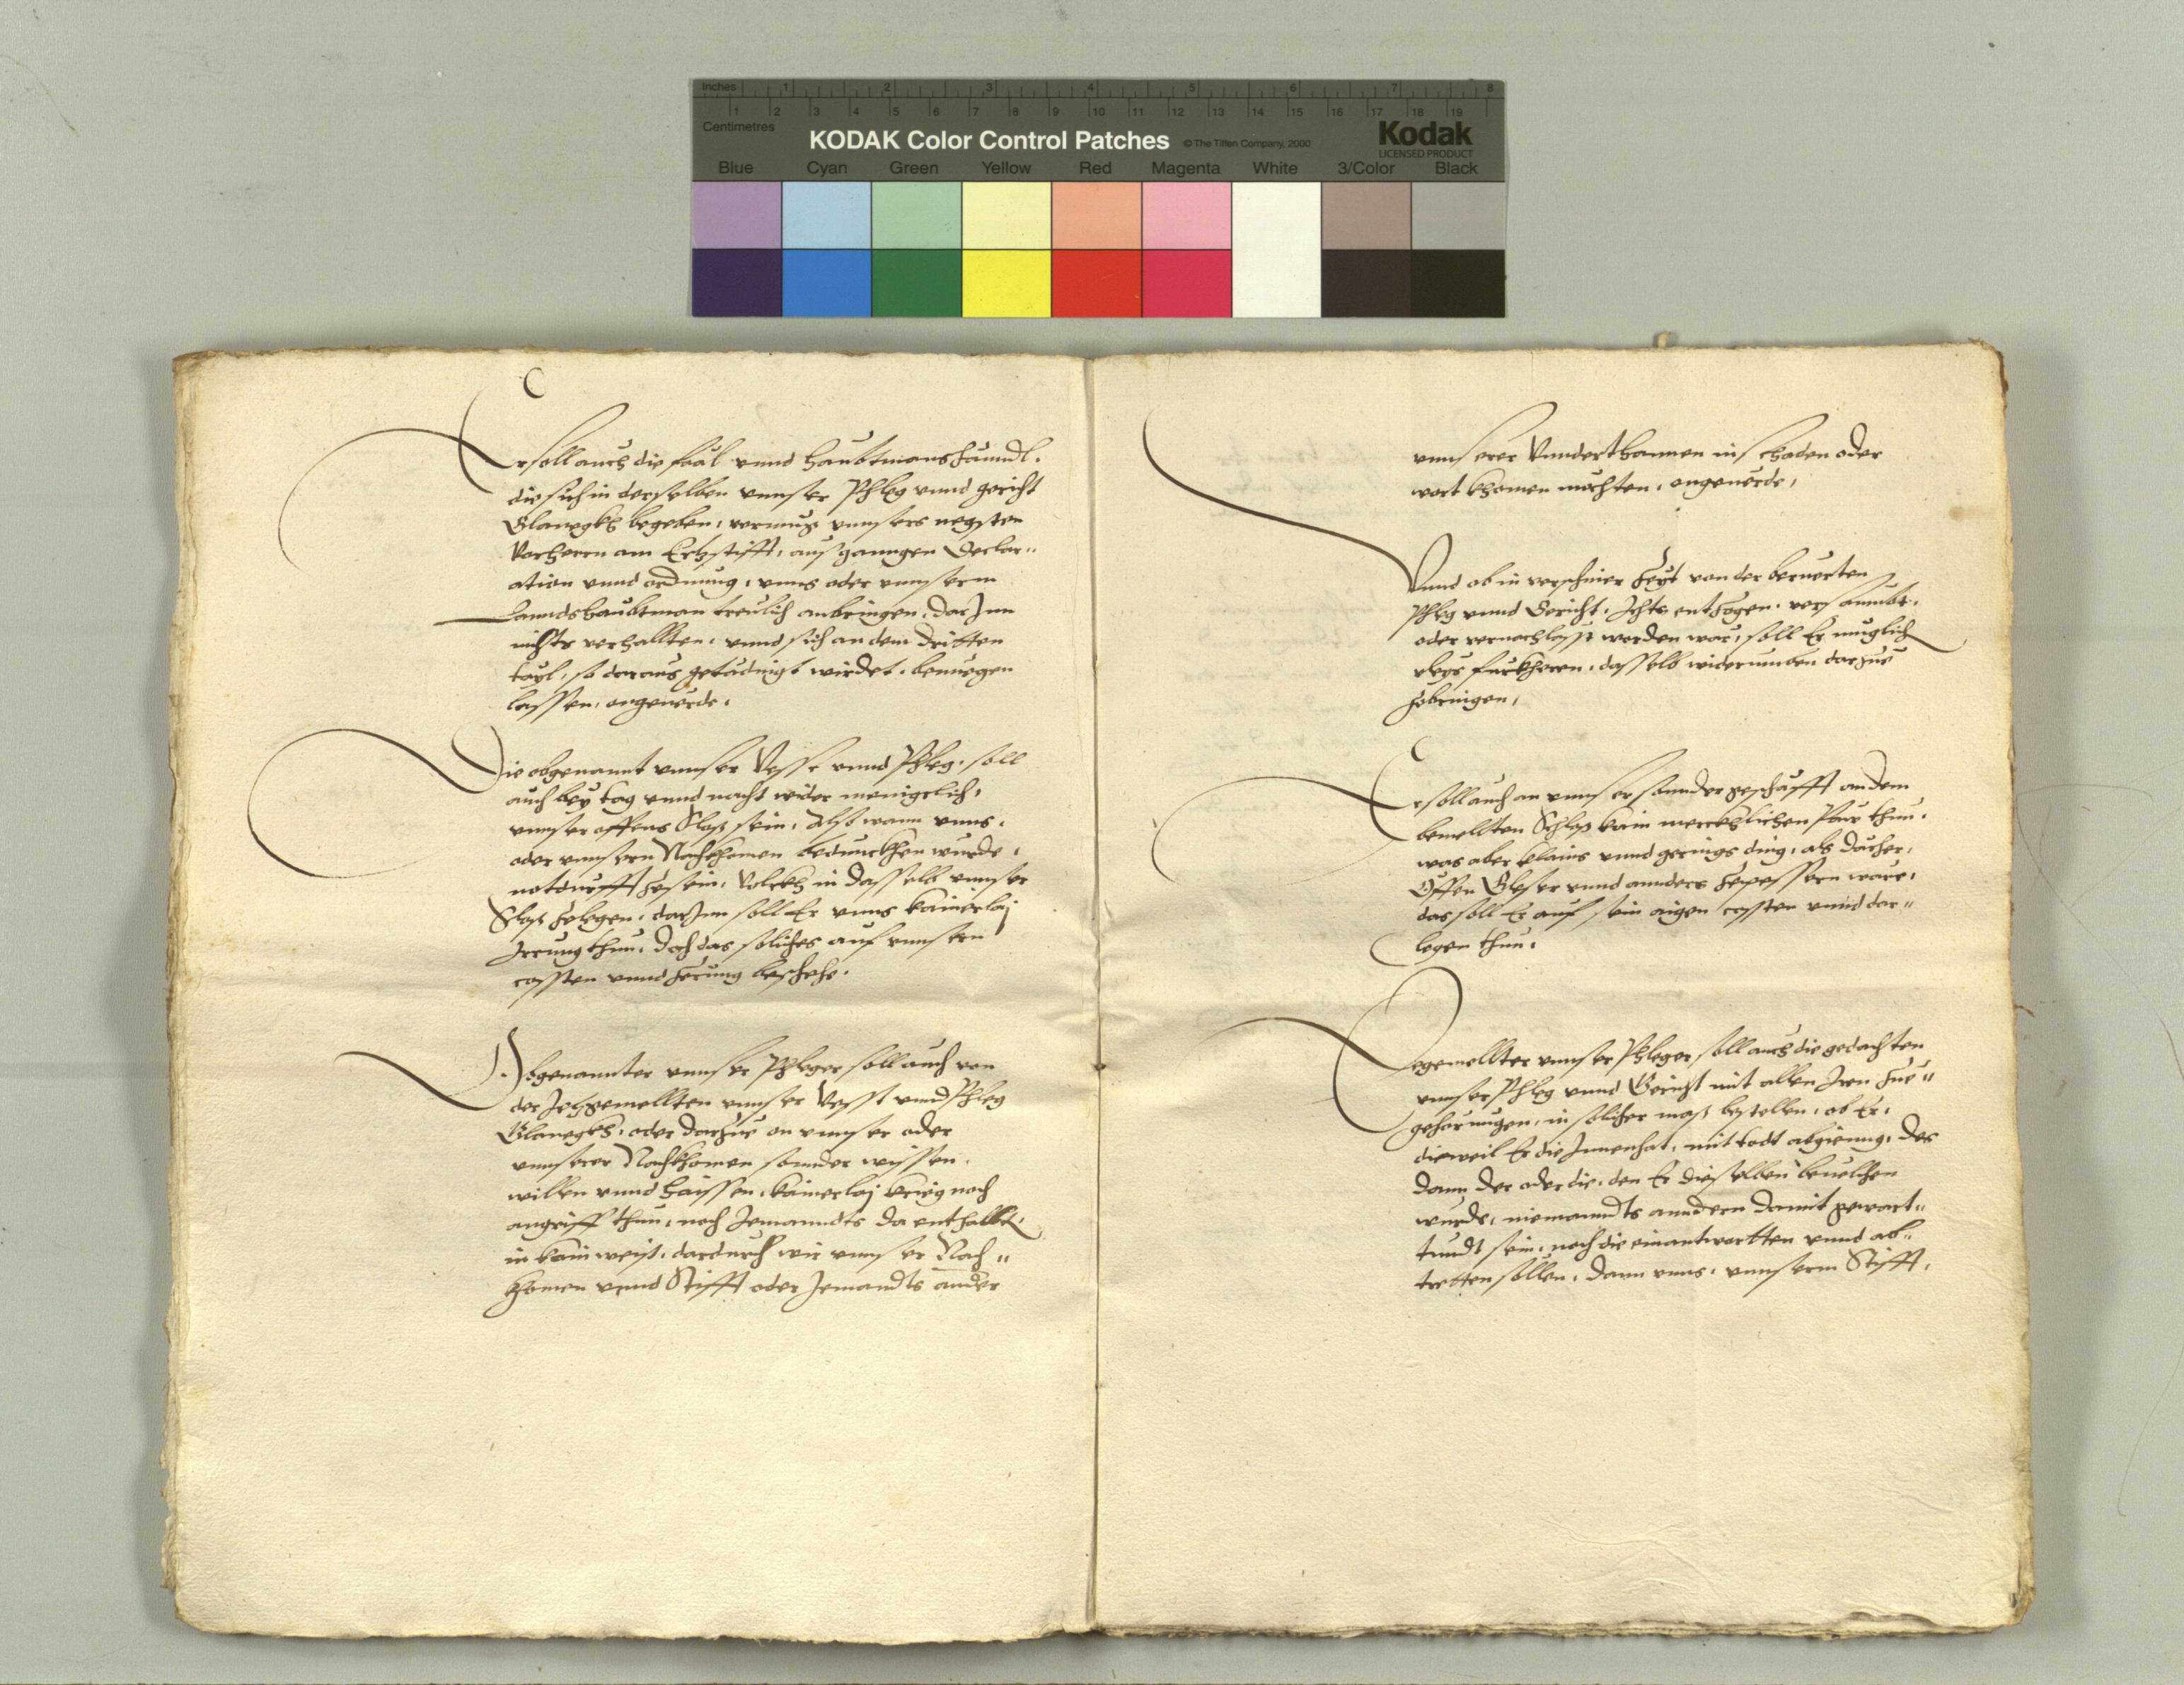 Inches 1 2 3 4 5 6 7 8
1 2 3 4 5 6 7 8 9 10 11 12 13 14 15 16 17 18 19
Centimetres
KODAK Color Control Patches © The Tiffen Company, 2000 Kodak
LICENSED PRODUCT
Blue Cyan Green Yellow Red Magenta White 3/Color Black
Er soll auch die fääl vnnd haubtmanshänndl.
die sich in derselben vnnser Phleg vnnd gericht
Glanegkh begeben, vermüg vnnsers negsten
Vorherrn am Ertzstifft, ausganngen Declar„
ation vnnd ordnung, vnns oder vnnserm
Lanndshaubtman treulich anbringen, darJnn
nichts verhallten, vnnd sich an dem dritten
tayl, so daraus getädingt wirdet, benuegen
lassen, ongeuerde,
Die obgenannt vnnser Vesst vnnd Phleg, soll
auch bey tag vnnd nacht wider menigelich,
vnnser offens Sloß sein, Also wann vnns,
oder vnnsern Nachkhomen bedunckhen wurde,
notdurfft zesein, Volckh in dasselb vnnser
Sloß zelegen, darJnn soll Er vnns kainerlaj
Jrrung thun, doch das solichs auf vnnsern
cossten vnnd zerung beschehe.
Obgenannter vnnser Phleger soll auch von
der Jetzgemellten vnnser Vesst vnnd Phleg
Glanegkh, oder darzue on vnnser oder
vnnserer Nachkhomen sonnder wissen,
willen vnnd haissen, kainerlaj krieg noch
angriff thun, noch Jemanndts da enthallten,
in kain weyß, dardurch wir vnnser Nach„
khomen vnnd Stifft oder Jemandts ander
vnnserer Vnnderthannen in schaden oder
wort khomen möchten, ongeuerde,
Vnnd ob in verschiner Zeyt von der beruerten
Phleg vnnd Gericht, Ichts entzogen, versaumbt,
oder vernachlasst worden wär, soll Er müglich
vleys furkheren, dasselb widerumben darzue
zebringen,
Er soll auch an vnnser sonnder geschäfft an dem
bemellten Schloß kain mercklichen Paw thun,
was aber klains vnnd gerings ding, als dächer,
Öffen Gleser vnnd annders zepessern wäre,
das soll Er auf sein aigen cossten vnnd dar„
legen thun,
Egemellter vnnser Phleger, soll auch die gedachten
vnnser Phleg vnnd Gericht mit allen Jren zue„
gehörungen, in solicher maß bestellen, ob Er,
dieweil Er die Jnnenhat, mit todt abgienng, des
dann der oder die, den Er dieselben beuelchen
wurde, niemanndts anndern damit gewart„
tundt sein, noch die einantwortten vnnd ab„
tretten sollen, dann vnns, vnnserm Stifft,